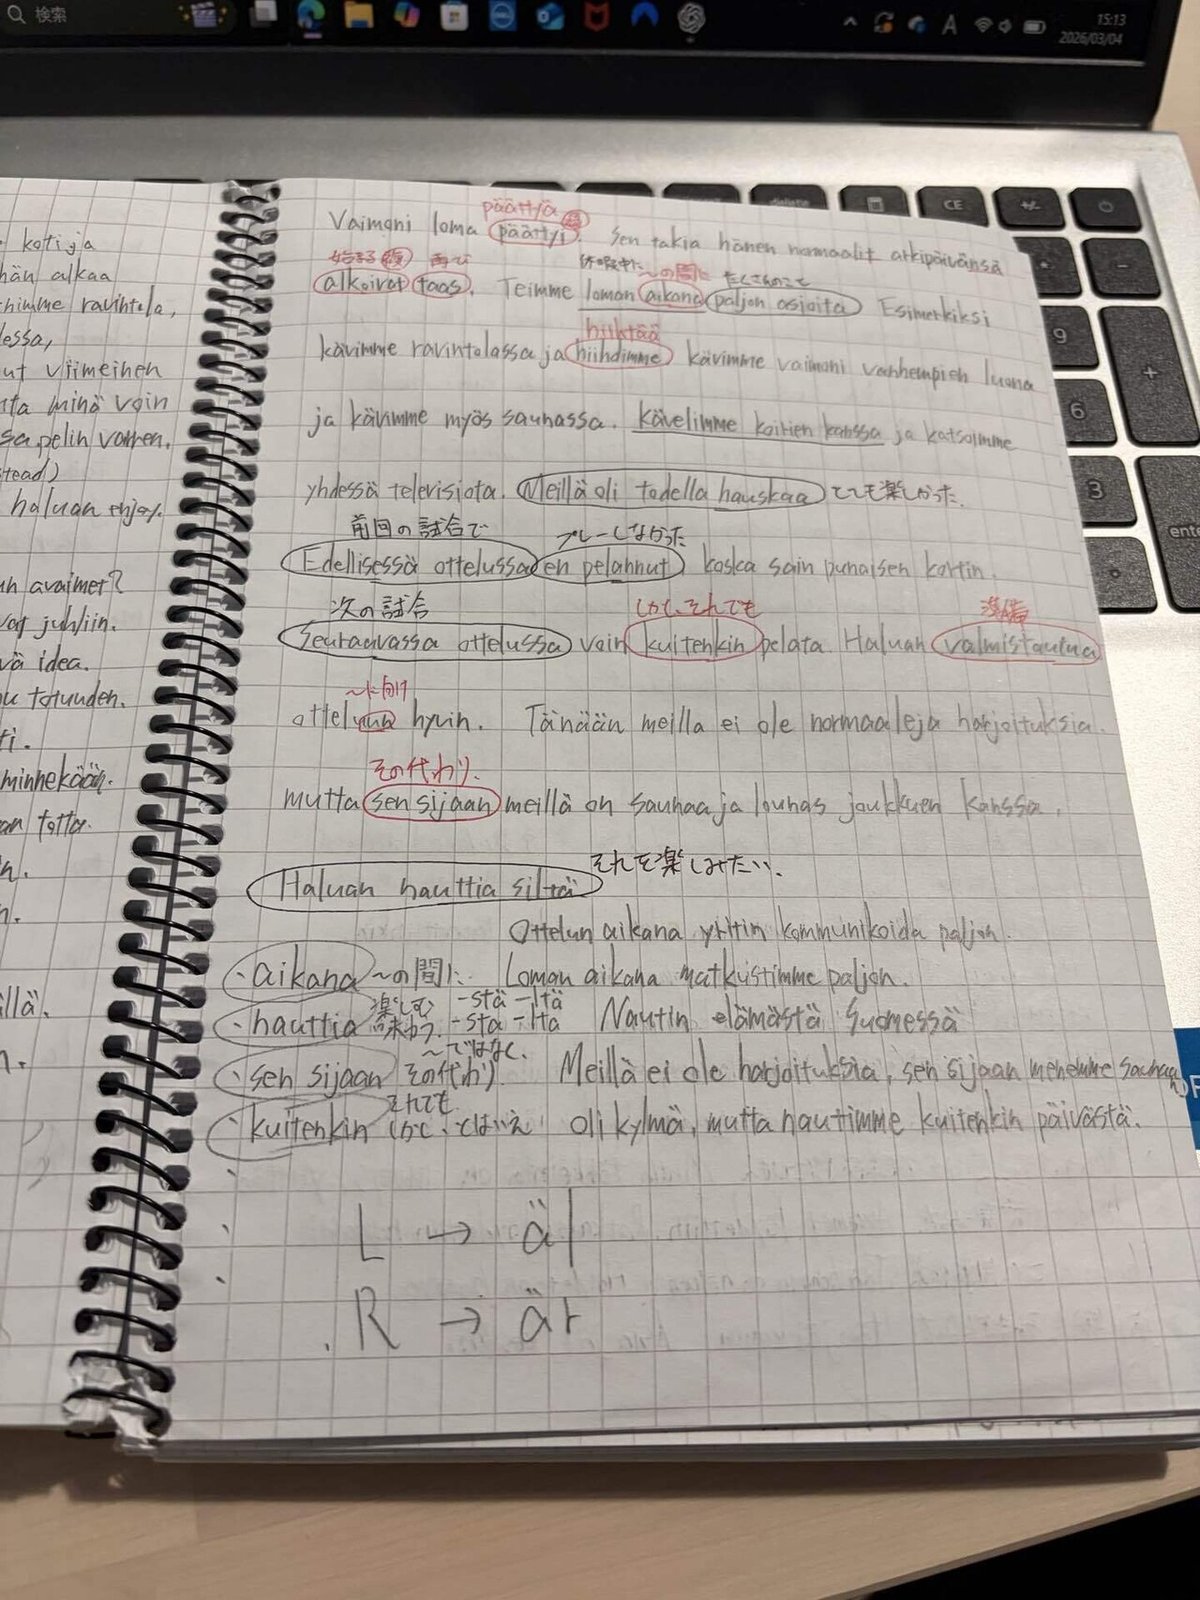 検索
15:13
2026/03/04
delete
CE
+/-
9
+
6
3
ente
kotija
hän alkaa
himme ravintola,
dessa,
ut viimeinen
nta minä voin
sa pelin varren.
stead)
haluan enjoy.
un avaimet?
vat juhliin.
vä idea.
u totuuden.
ti.
minnekään.
an totta.
n.
n.
illä.
n.
päättyä
Vaimoni loma päättyi. Sen takia hänen normaalit arkipäivänsä
始まる 複 再び 休暇中に ～の間に たくさんのこと
alkoivat taas. Teimme loman aikana paljon asioita Esimerkiksi
hiihtää
kävimme ravintolassa ja hiihdimme kävimme vaimoni vanhempien luona
ja kävimme myös saunassa. Kävelimme koirien kanssa ja katsoimme
yhdessä televisiota. Meillä oli todella hauskaa とても楽しかった.
前回の試合で プレーしなかった
Edellisessä ottelussa en pelannut koska sain punaisen kortin.
次の試合 しかし、それでも 準備
Seuraavassa ottelussa voin kuitenkin pelata. Haluan valmistautua
～に向け
otteluun hyvin. Tänään meilla ei ole normaaleja harjoituksia.
その代わり.
mutta sen sijaan meillä on saunaa ja lounas joukkuen kanssa.
それを楽しみたい.
Haluan nauttia siitä
Ottelun aikana yritin kommunikoida paljon.
・aikana ～の間に Loman aikana matkustimme paljon.
楽しむ -stä -ltä
・nauttia 味わう. -sta -lta Nautin elämästä Suomessä
～ではなく.
・sen sijaan その代わり Meillä ei ole harjoituksia, sen sijaan menemme saunaan
それでも
・kuitenkin しかし、とはいえ oli kylmä, mutta nautimme kuitenkin päivästä.
L → äl
R → är